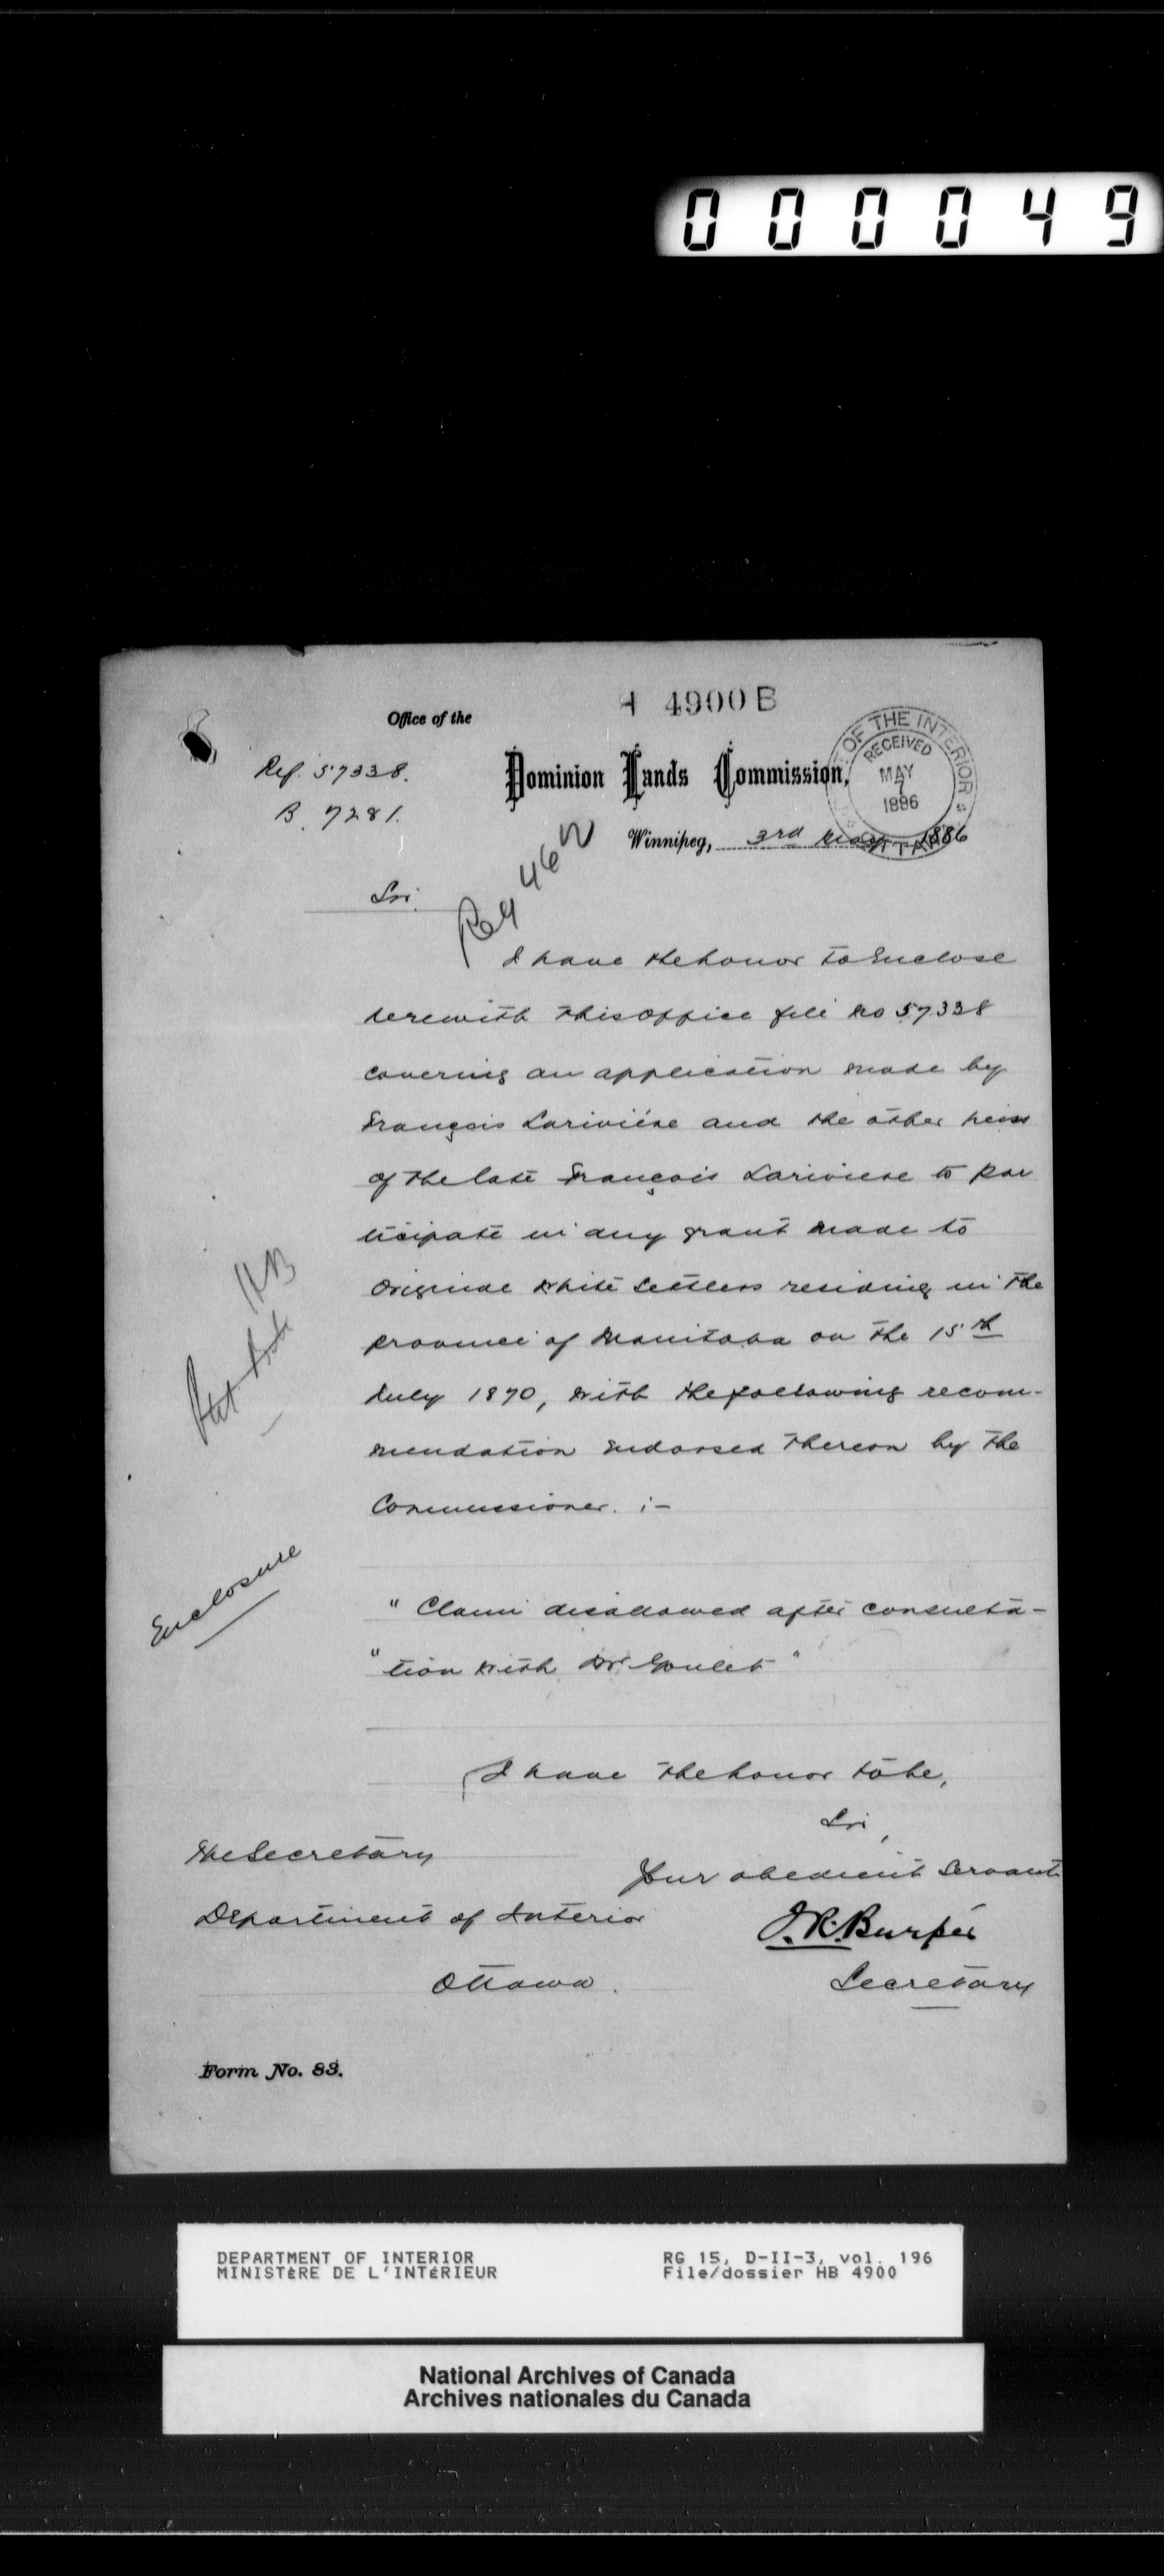 000049
4900 B
Office of the
Ref. 57338.
B. 7281.
Dominion Lands Commission,
OF THE INTERIOR
RECEIVED
MAY
7
1886
OTTAWA
Winnipeg, 3rd May 1886
Reg 46
Sir
I have the honor to enclose
herewith this office file No 57338
covering an application made by
François Lariviére and the other heirs
of the late François Lariviere to par
ticipate in any grant made to
original white settlers residing in the
province of Manitoba on the 15th
July 1870, with the following recom-
mendation endorsed thereon by the
Commissioner. :-
HB
Enclosure
" Claim disallowed after consulta-
" tion with Mr Goulet "
I have the honor to be,
Sir,
Your obedient Servant
J.R. Burpé
Secretary
The Secretary
Department of Interior
Ottawa.
Form No. 83.
DEPARTMENT OF INTERIOR
MINISTÈRE DE L'INTÉRIEUR
RG 15, D-II-3, vol. 196
File/dossier HB 4900
National Archives of Canada
Archives nationales du Canada